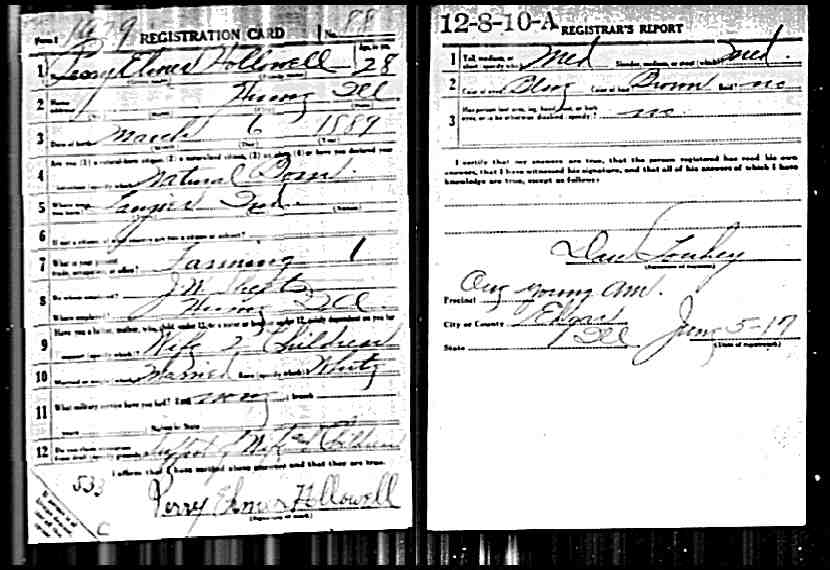 Form 1 1679 REGISTRATION CARD No. 88
1 Perry Elmer Hollowell Age, in yrs. 28
2 Home address Hume Ill
3 Date of birth March 6 1889
4 Are you (1) a natural-born citizen, (2) a naturalized citizen, (3) an alien, (4) or have you declared your
intention (specify which)? Natural Born.
5 Where were you born? Tangier Ind.
6 If not a citizen, of what country are you a citizen or subject?
7 What is your present trade, occupation, or office? Farming 1
8 By whom employed? J.W.
Where employed? Hume Ill
9 Have you a father, mother, wife, child under 12, or a sister or brother under 12, solely dependent on you for
support (specify which)? Wife 2 Children
10 Married or single (which)? Married Race (specify which)? White
11 What military service have you had? Rank none branch
years Nation or State
12 Do you claim exemption from draft (specify grounds)? Support of Wife and Children
I affirm that I have verified above answers and that they are true.
533
C
Perry Elmer Hollowell
(Signature or mark)
12-8-10-A REGISTRAR'S REPORT
1 Tall, medium, or short (specify which)? Med Slender, medium, or stout (which)? Med.
2 Color of eyes? Blue Color of hair? Brown Bald? no
3 Has person lost arm, leg, hand, foot, or both
eyes, or is he otherwise disabled (specify)? no
I certify that my answers are true, that the person registered has read his own
answers, that I have witnessed his signature, and that all of his answers of which I have
knowledge are true, except as follows:
Dan
(Signature of registrar)
Precinct young am.
City or County Edgar
State Ill June 5-17
(Date of registration)